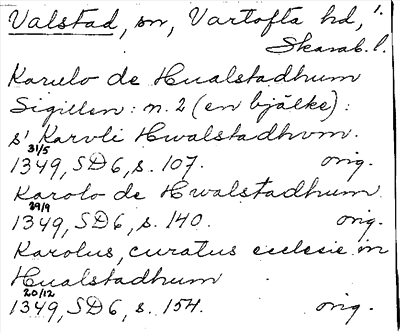 Valstad, sn, Vartofta hd,
Skarab. l.
Karulo de Hualstadhum
Sigillen: n. 2 (en bjälke):
s' Karvli Hwalstadhvm.
31/5
1349, SD6, s. 107. orig.
Karolo de Hwalstadhum
29/9
1349, SD6, s. 140. orig.
Karolus, curatus ecclesie in
Hualstadhum
20/12
1349, SD6, s. 154. orig.